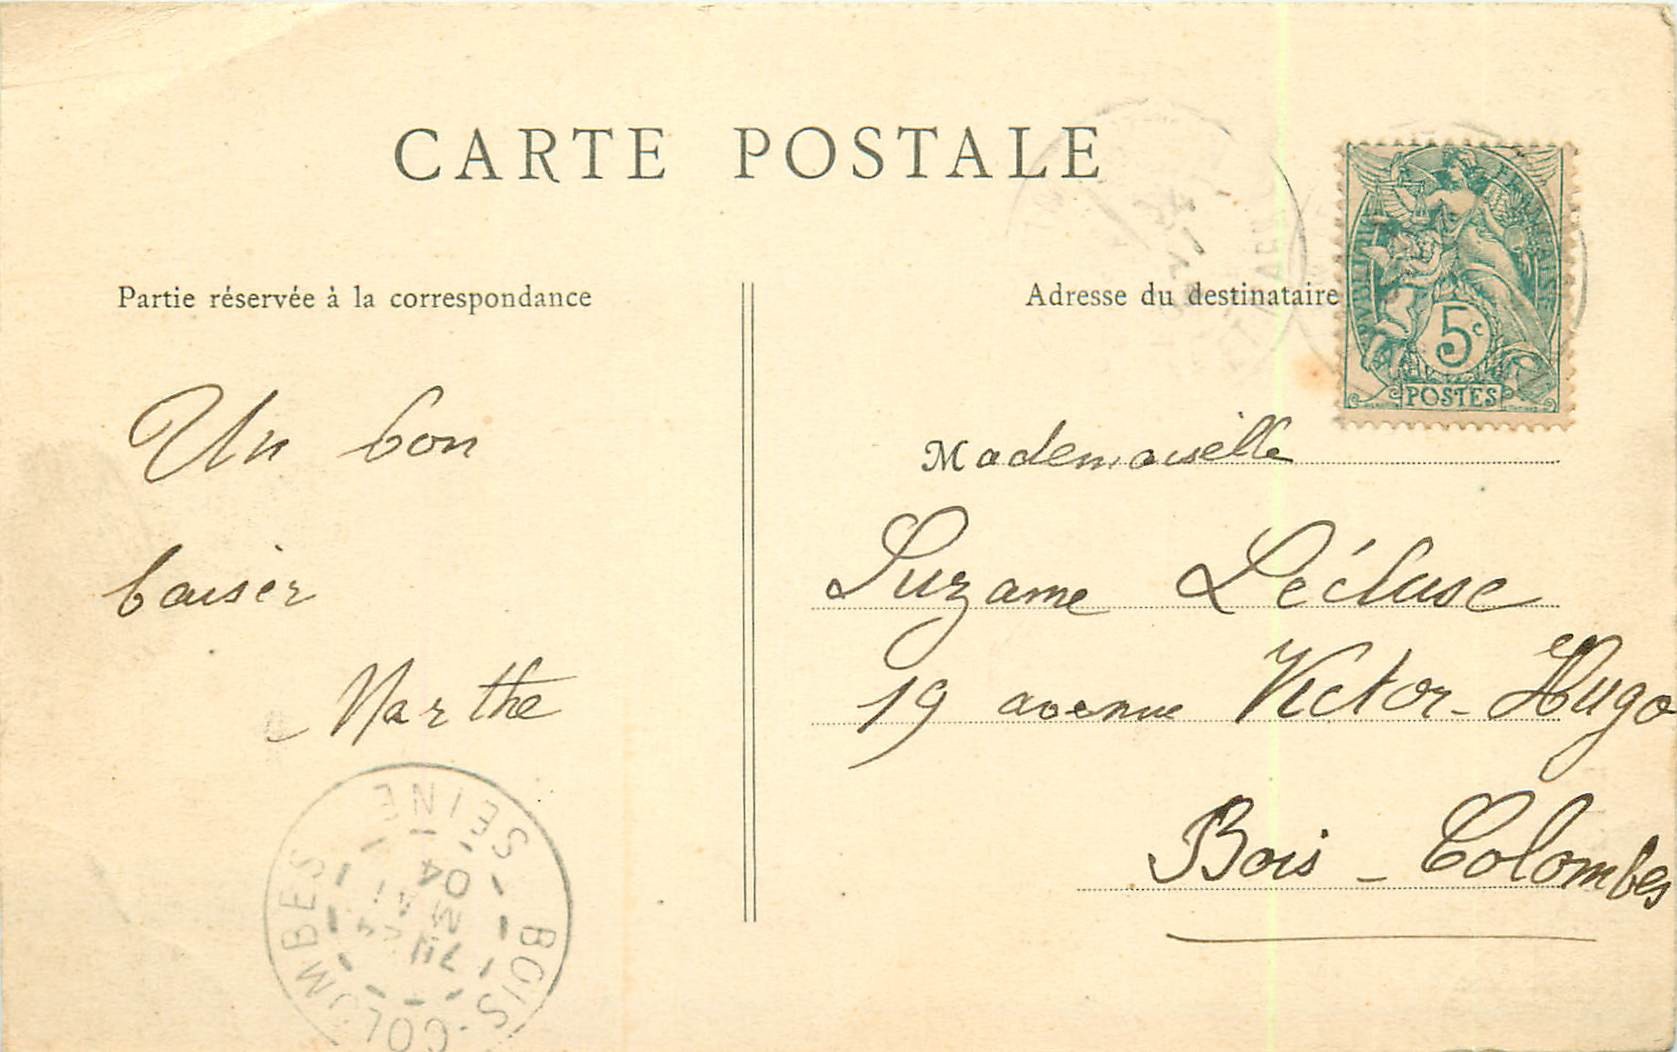 CARTE POSTALE
Partie réservée à la correspondance
Un bon
baiser
Marthe
Adresse du destinataire
RÉPUBLIQUE FRANÇAISE
5c
POSTES
Mademoiselle
Suzanne Lécluse
19 avenue Victor-Hugo
Bois-Colombes
BOIS-COLOMBES SEINE
04